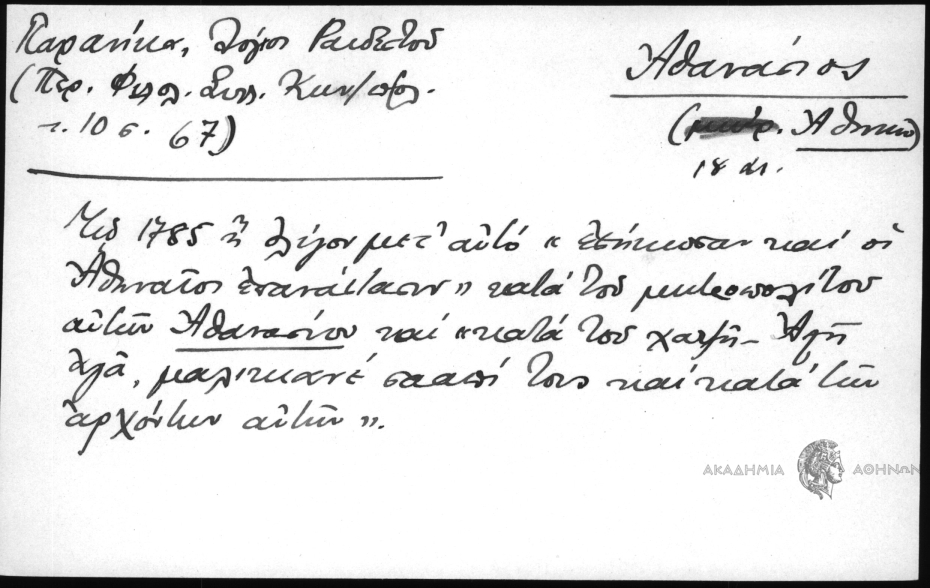 Παρανίκα, Λόγιοι Ραιδεστοῦ
(Περ. Φιλολ. Συλλ. Κων/πολ.
τ. 10 σ. 67)
Ἀθανάσιος
(μητρ. Ἀθηνῶν)
18 αι.
Τῷ 1785 ἢ ὀλίγον μετ' αὐτό « ἐσήκωσαν καί οἱ
Ἀθηναῖοι ἐπανάστασιν » κατά τοῦ μητροπολίτου
αὐτῶν Ἀθανασίου καί «κατά τοῦ χατζῆ-Ἀλῆ
ἀγᾶ, μαλικιανέ σααπί τους καί κατά τῶν
ἀρχόντων αὐτῶν ».
ΑΚΑΔΗΜΙΑ ΑΘΗΝΩΝ